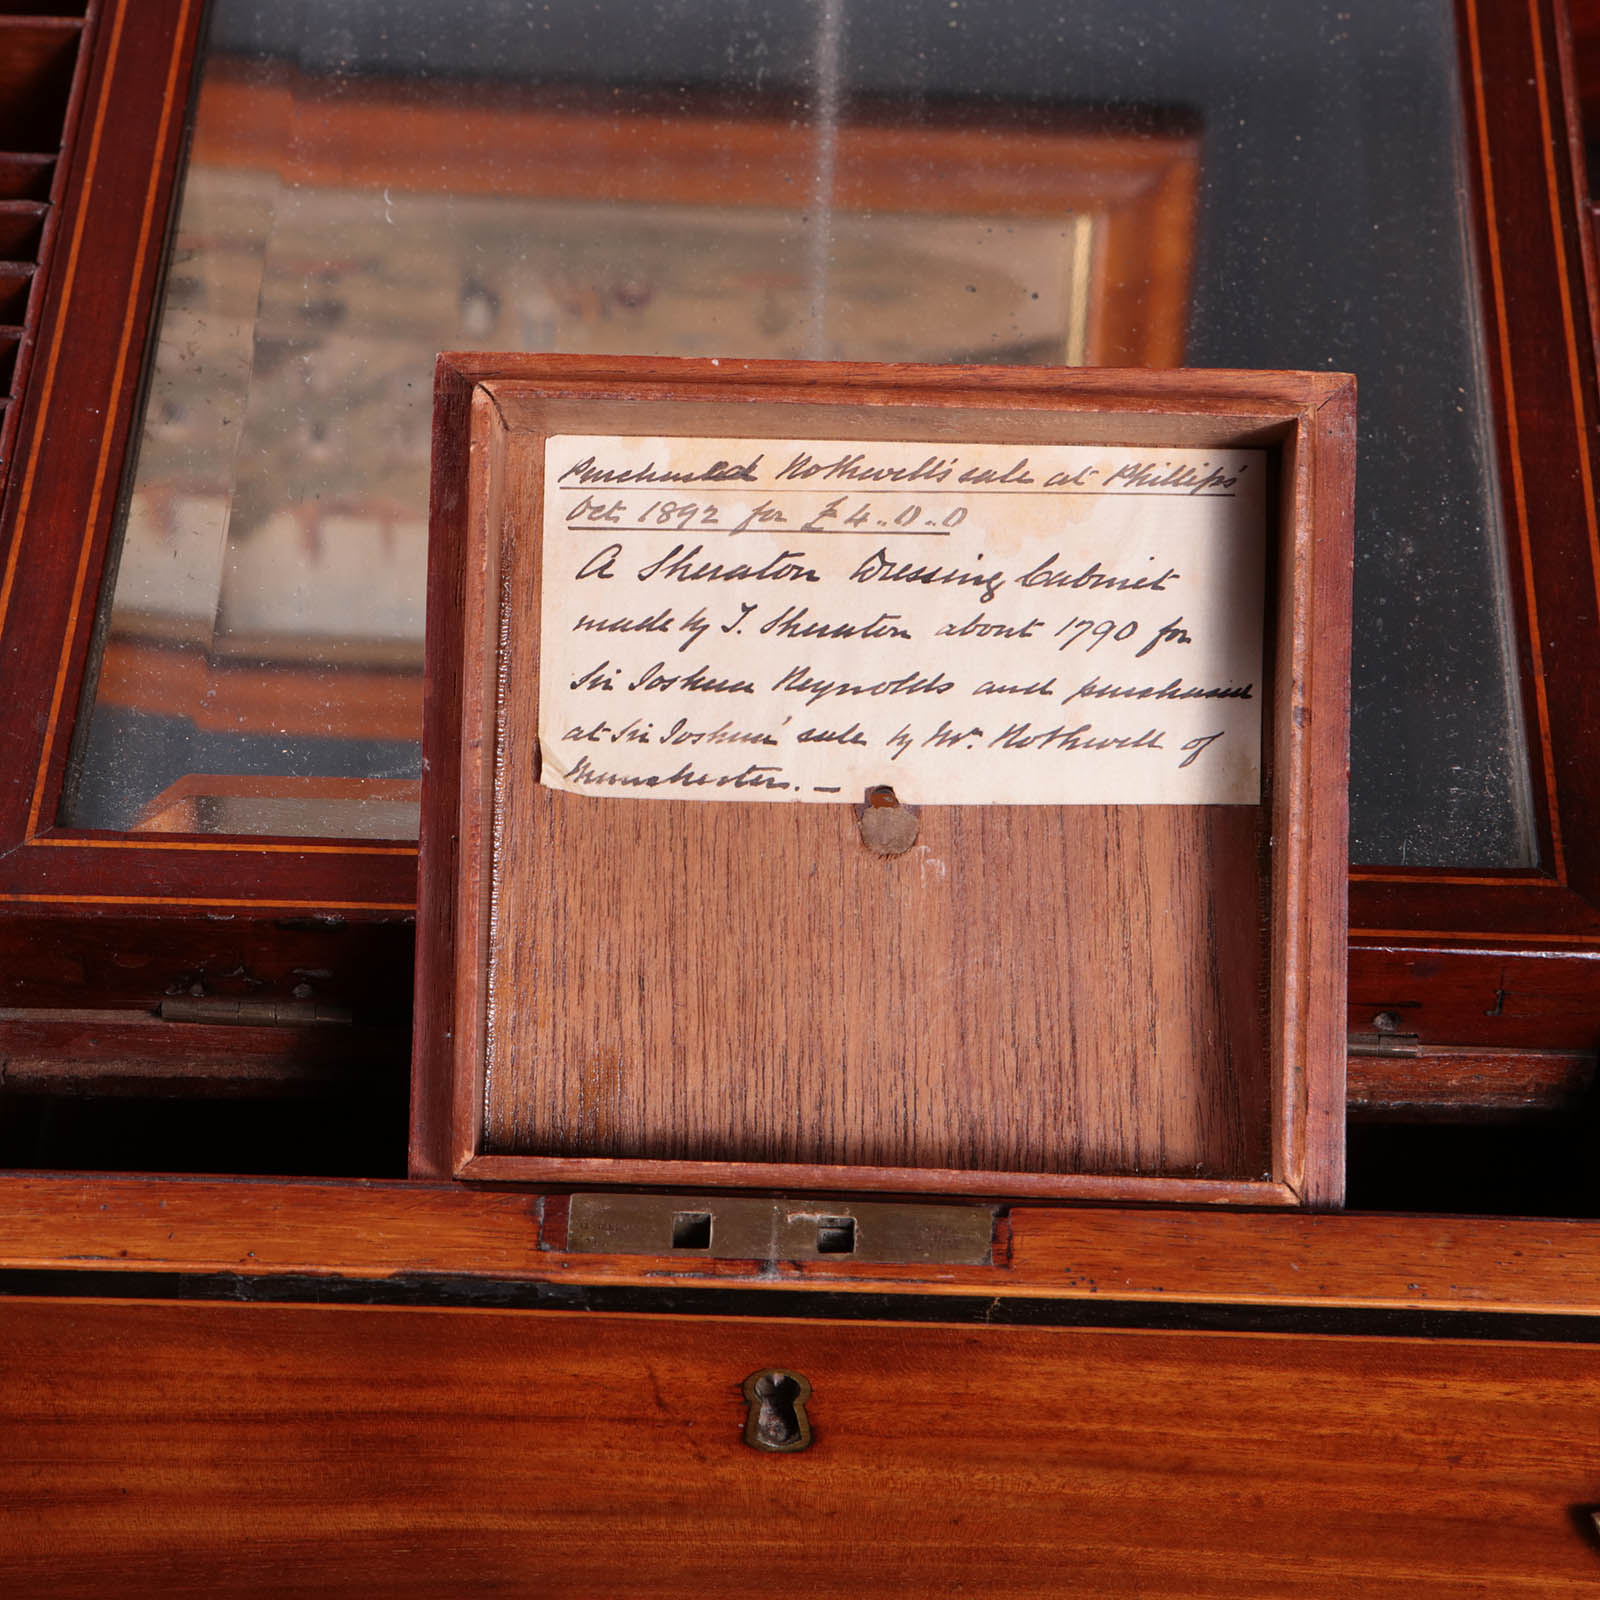 Purchased Rothwell's sale at Phillips'
Oct. 1892 for £4..0..0
A Sheraton Dressing Cabinet
made by T. Sheraton about 1790 for
Sir Joshua Reynolds and purchased
at Sir Joshua' sale by Mr. Rothwell of
Manchester. —